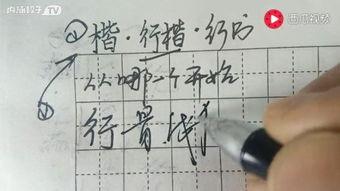 内涵段子TV
西瓜视频
① 楷·行楷·行的
从哪一个开始
②
行骨线